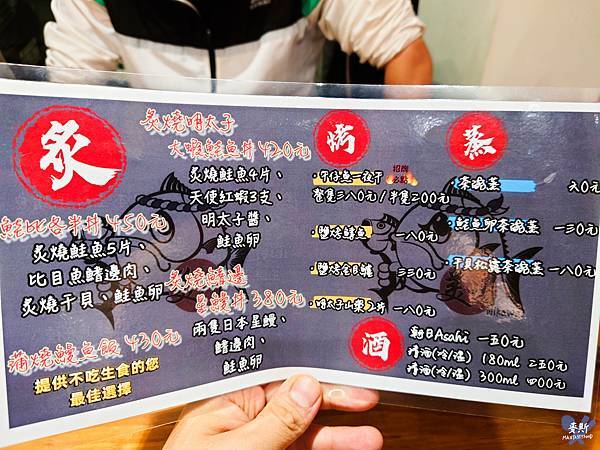 炙
炙燒明太子
大蝦鮭魚丼 420元
炙燒鮭魚4片、
天使紅蝦3支、
明太子醬、
鮭魚卵
鮭比各半丼 450元
炙燒鮭魚5片、
比目魚鰭邊肉、
炙燒干貝、鮭魚卵
炙燒鰭邊
星鰻丼 380元
兩隻日本星鰻、
鰭邊肉、
鮭魚卵
蒲燒鰻魚飯 430元
提供不吃生食的您
最佳選擇
烤
午仔魚一夜干
招牌
必點
整隻三八0元/半隻二00元
鹽烤鯖魚 一八0元
三三0元
明太子山藥2片 一八0元
蒸
茶碗蒸 八0元
鮭魚卵茶碗蒸 一三0元
茶碗蒸 一八0元
酒
朝日Asahi 一五0元
清酒(冷/溫) 180ml 二五0元
清酒(冷/溫) 300ml 四00元
麥斯